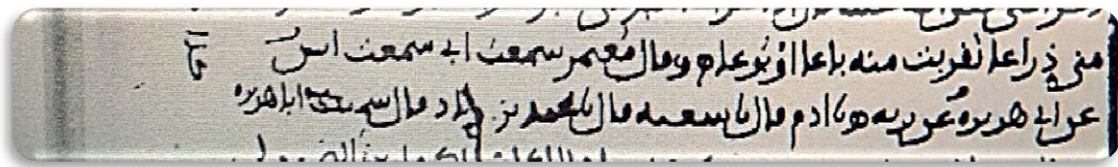 مني ذراعا تقربت منه باعا او بوعا م وقال معتمر سمعت ابي سمعت انس
عن ابي هريره عن ربه ه نا ادم قال نا شعبه قال نا محمد بن زياد قال سمعت ابا هريره